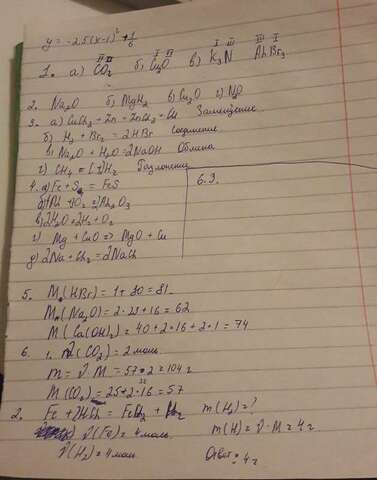 y = -2,5(x-1)² + 1/6
1. а) CO₂ б) Cu₂O в) K₃N AlBr₃
2. Na₂O б) MgH₂ в) Cu₂O г)
3. а) CuCl₂ + Zn = ZnCl₂ + Cu Замещение
б) H₂ + Br₂ = 2HBr Соединение
в) Na₂O + H₂O = 2NaOH Обмена
г) CH₄ = H₂ Разложение
4. а) Fe + S = FeS
6.3.
в) 2H₂O = 2H₂ + O₂
г) Mg + CuO => MgO + Cu
д) 2Na + Cl₂ = 2NaCl
5. M(HBr) = 1 + 80 = 81
M(Na₂O) = 2·23+16 = 62
M(Ca(OH)₂) = 40+2·16+2·1 = 74
6. 1. (CO₂) = 2 моль
m = ν · M = 57·2 = 104г
M(CO₂) = 25+2·16 = 57
2. Fe + 2HCl = FeCl₂ + H₂ m(H₂) = ?
ν(Fe) = 4 моль m(H) = ν · M = 4г
ν(H₂) = 4 моль Ответ: 4г